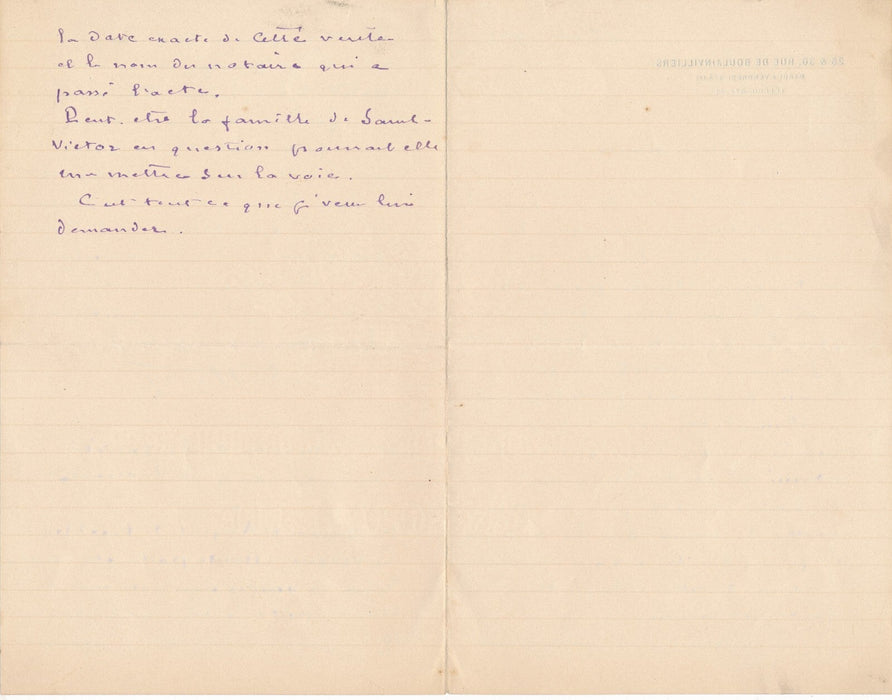 la date exacte de cette vente
et le nom du notaire qui a
passé l'acte.
Peut-être la famille de Saint-
Victor en question pourrait elle
me mettre sur la voie.
C'est tout ce que je veux lui
demander.
28 & 30, RUE DE BOULAINVILLIERS